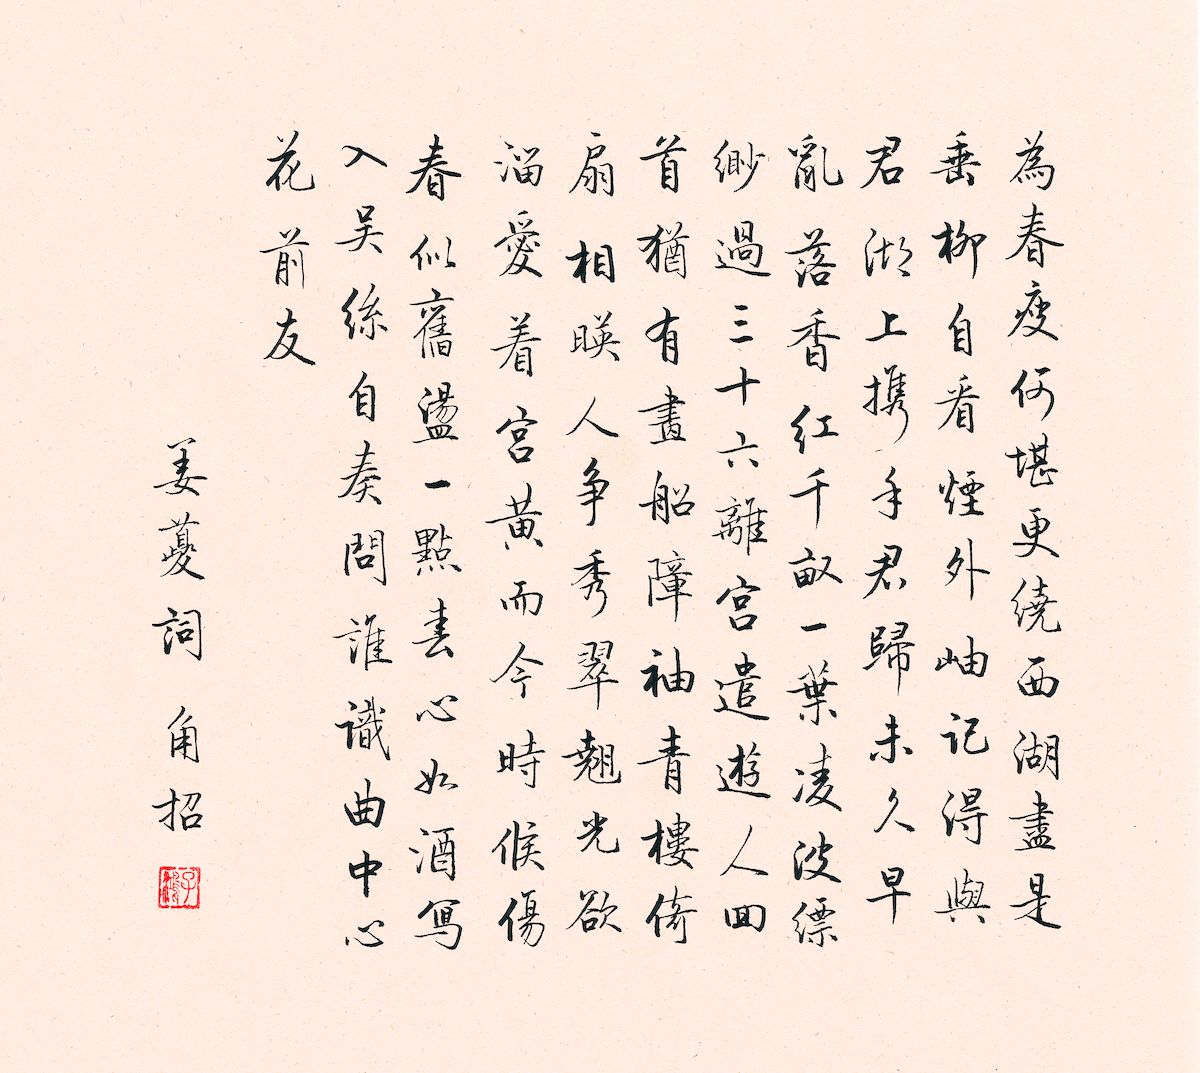 為春瘦何堪更繞西湖盡是
垂柳自看煙外岫記得與
君湖上携手君歸未久早
亂落香紅千畝一葉凌波縹
緲過三十六離宮遣遊人回
首猶有畫船障袖青樓倚
扇相暎人争秀翠翹光欲
溜愛着宮黃而今時候傷
春似舊盪一點春心如酒寫
入吳絲自奏問誰識曲中心
花前友
姜夔詞 角招